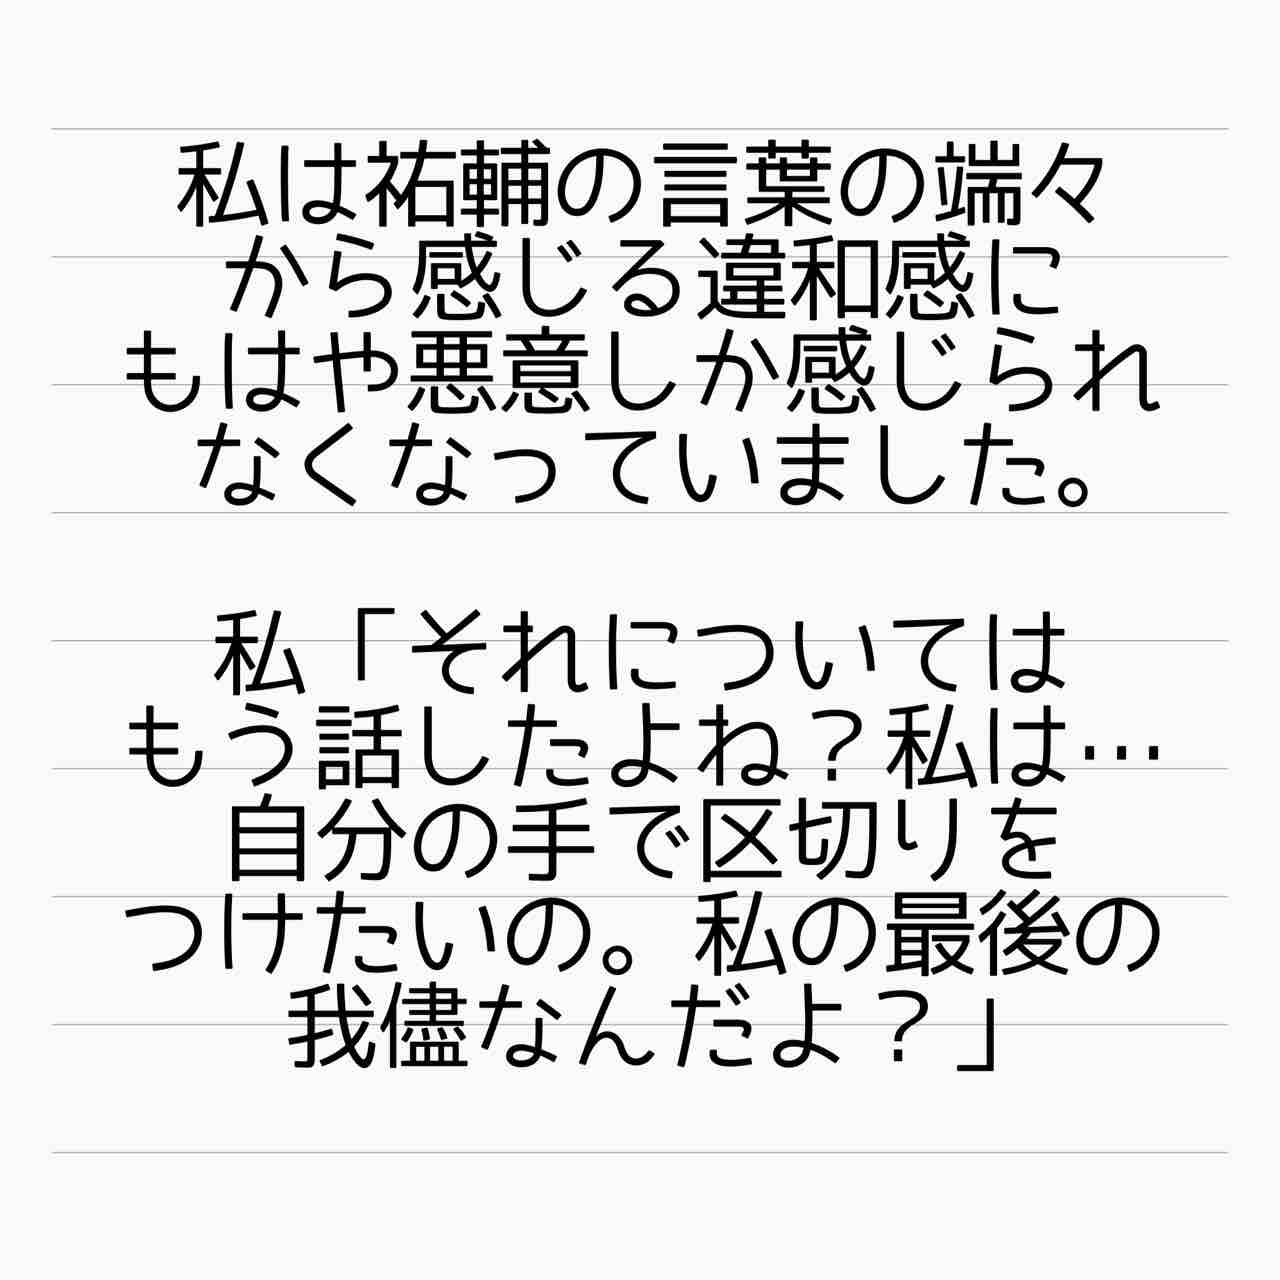 私は祐輔の言葉の端々
から感じる違和感に
もはや悪意しか感じられ
なくなっていました。
私「それについては
もう話したよね？私は…
自分の手で区切りを
つけたいの。私の最後の
我儘なんだよ？」